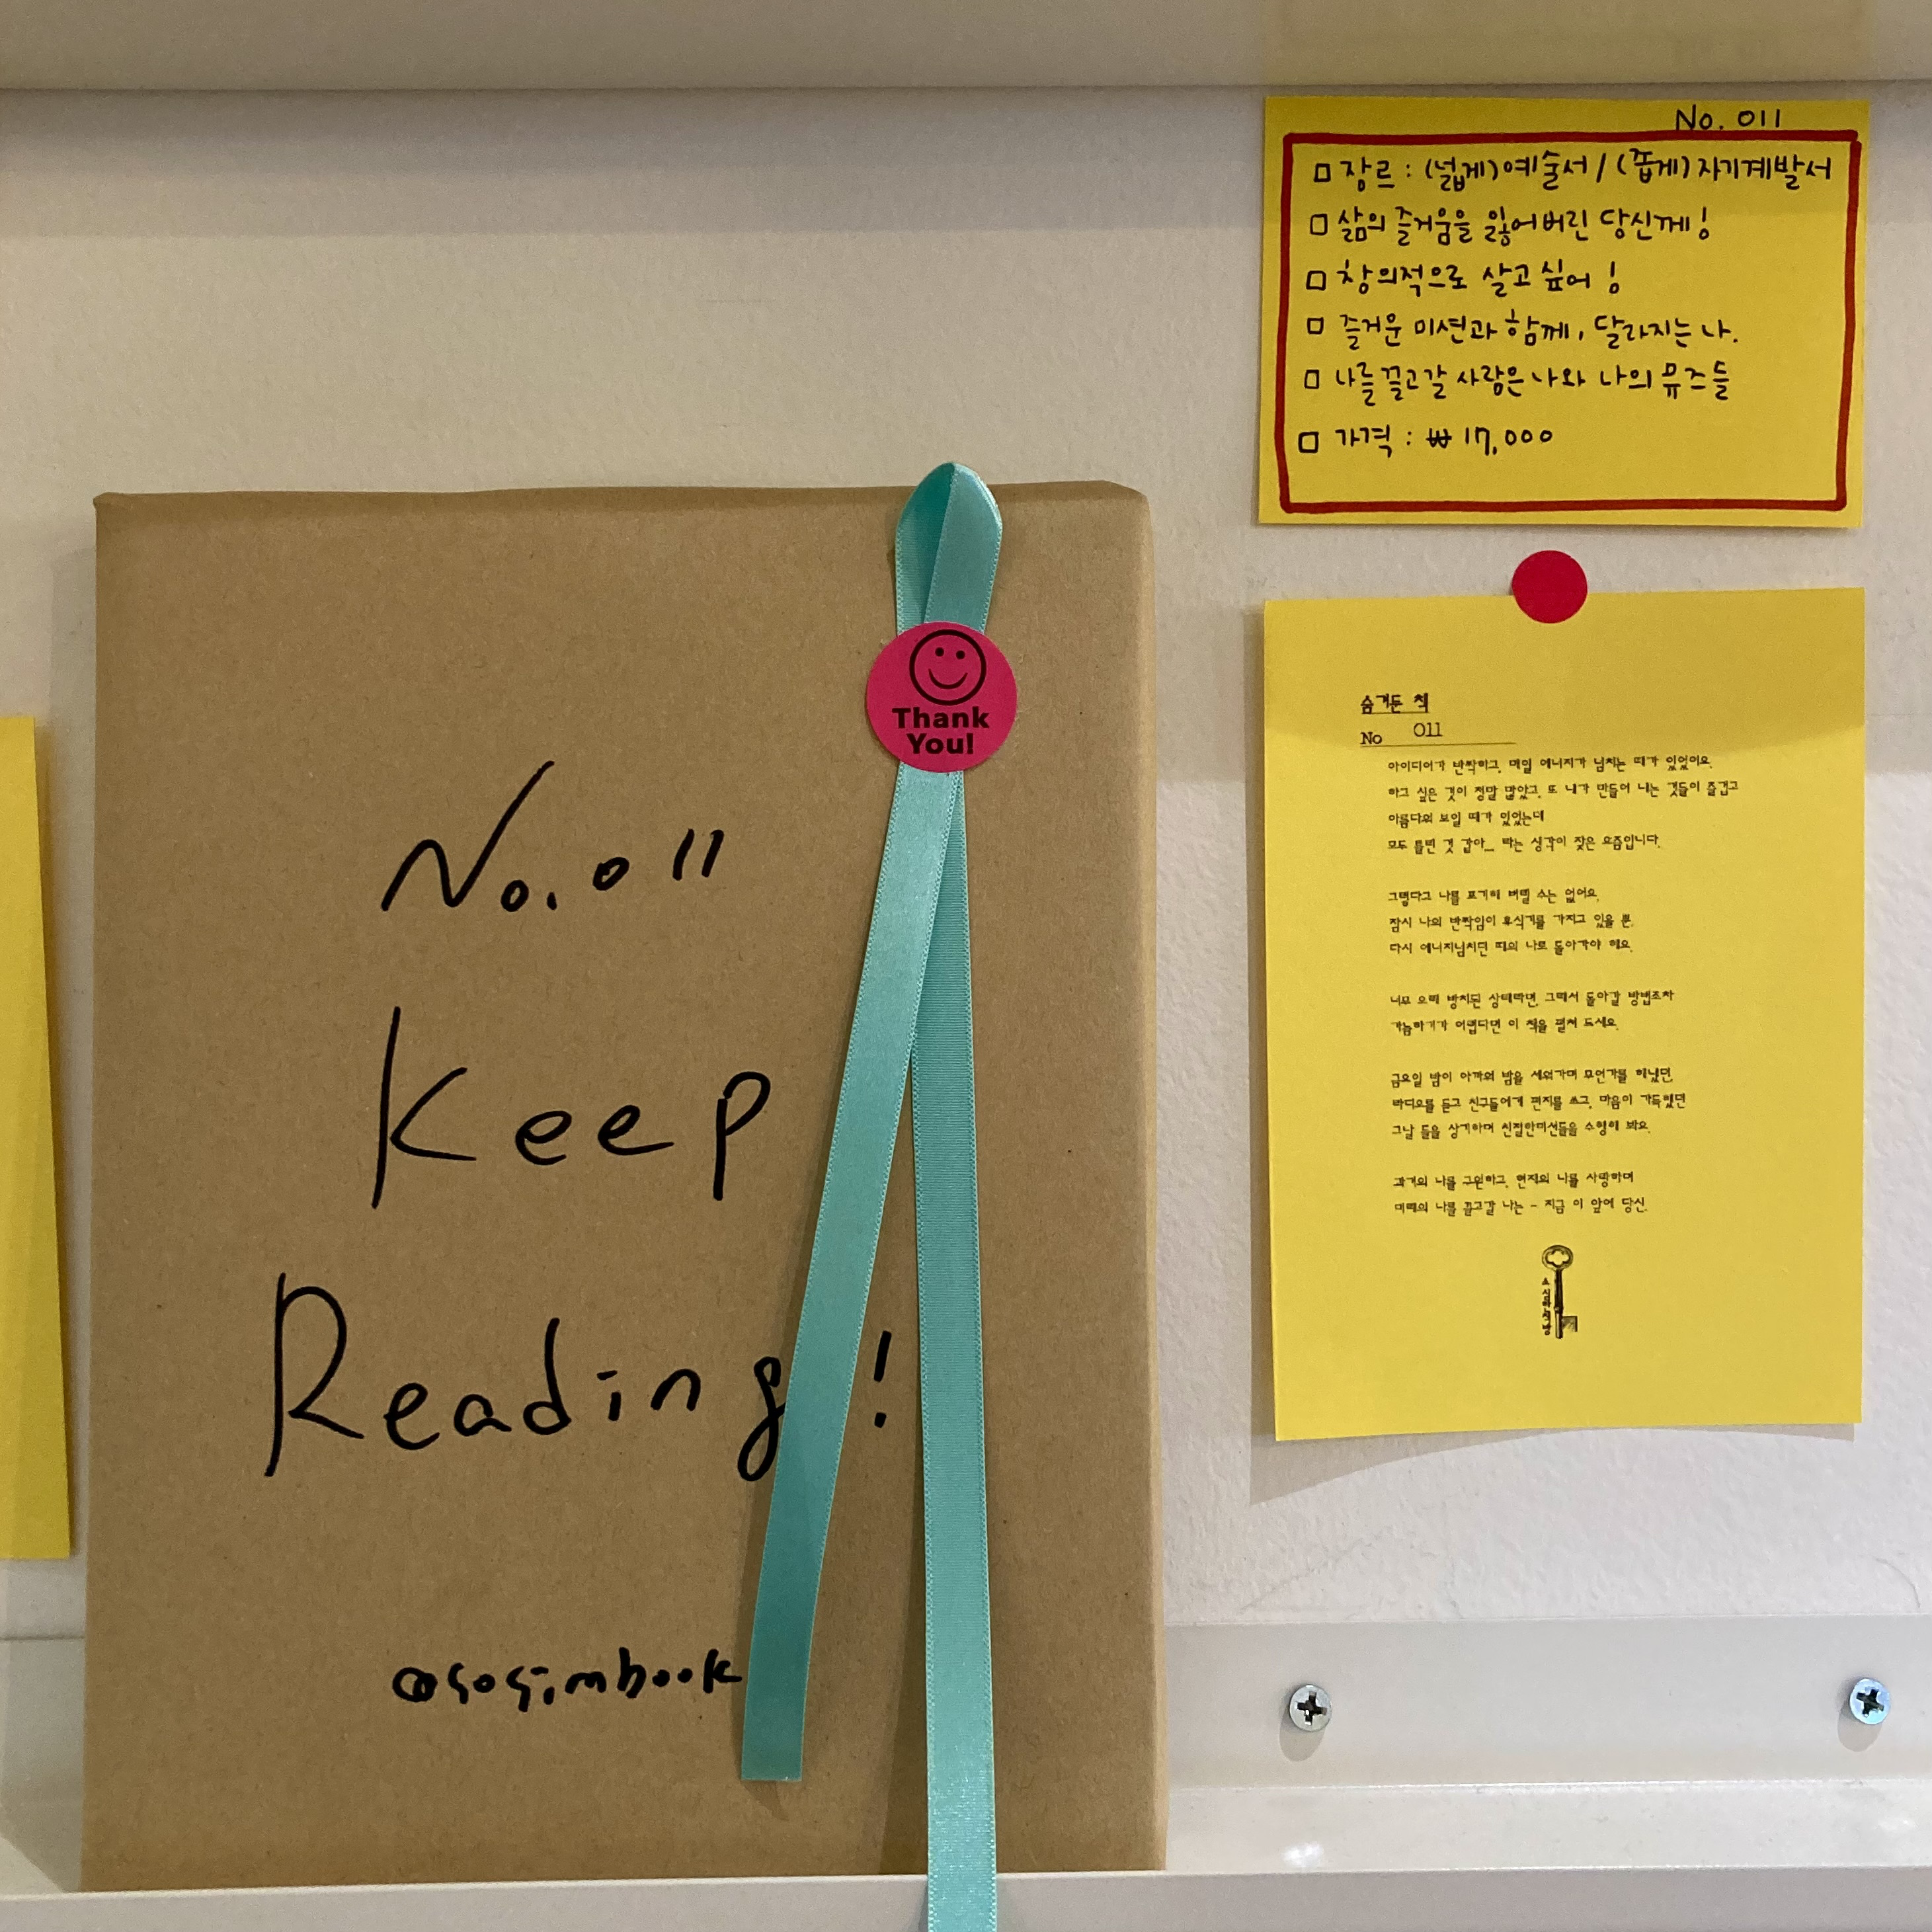 No. 011
Keep
Reading!
@sosimbook
Thank
You!
No. 011
□ 장르 : (넓게)예술서 / (좁게)자기계발서
□ 삶의 즐거움을 잃어버린 당신께!
□ 창의적으로 살고 싶어!
□ 즐거운 미션과 함께, 달라지는 나.
□ 나를 끌고갈 사람은 나와 나의 뮤즈들
□ 가격 : ₩17,000
숨겨둔 책
No 011
아이디어가 반짝하고, 매일 에너지가 넘치는 때가 있었어요.
하고 싶은 것이 정말 많았고, 또 내가 만들어 내는 것들이 즐겁고
아름다워 보일 때가 있었는데
모두 틀린 것 같아... 라는 생각이 잦은 요즘입니다.
그렇다고 나를 포기해 버릴 수는 없어요.
잠시 나의 반짝임이 휴식기를 가지고 있을 뿐.
다시 에너지넘치던 때의 나로 돌아가야 해요.
너무 오래 방치된 상태라면, 그래서 돌아갈 방법조차
가늠하기가 어렵다면 이 책을 펼쳐 드세요.
금요일 밤이 아까워 밤을 세워가며 무언가를 해냈던,
라디오를 듣고 친구들에게 편지를 쓰고, 마음이 가득했던
그날 들을 상기하며 친절한미션들을 수행해 봐요.
과거의 나를 구원하고, 현재의 나를 사랑하며
미래의 나를 끌고갈 나는 - 지금 이 앞에 당신.
소심한책방